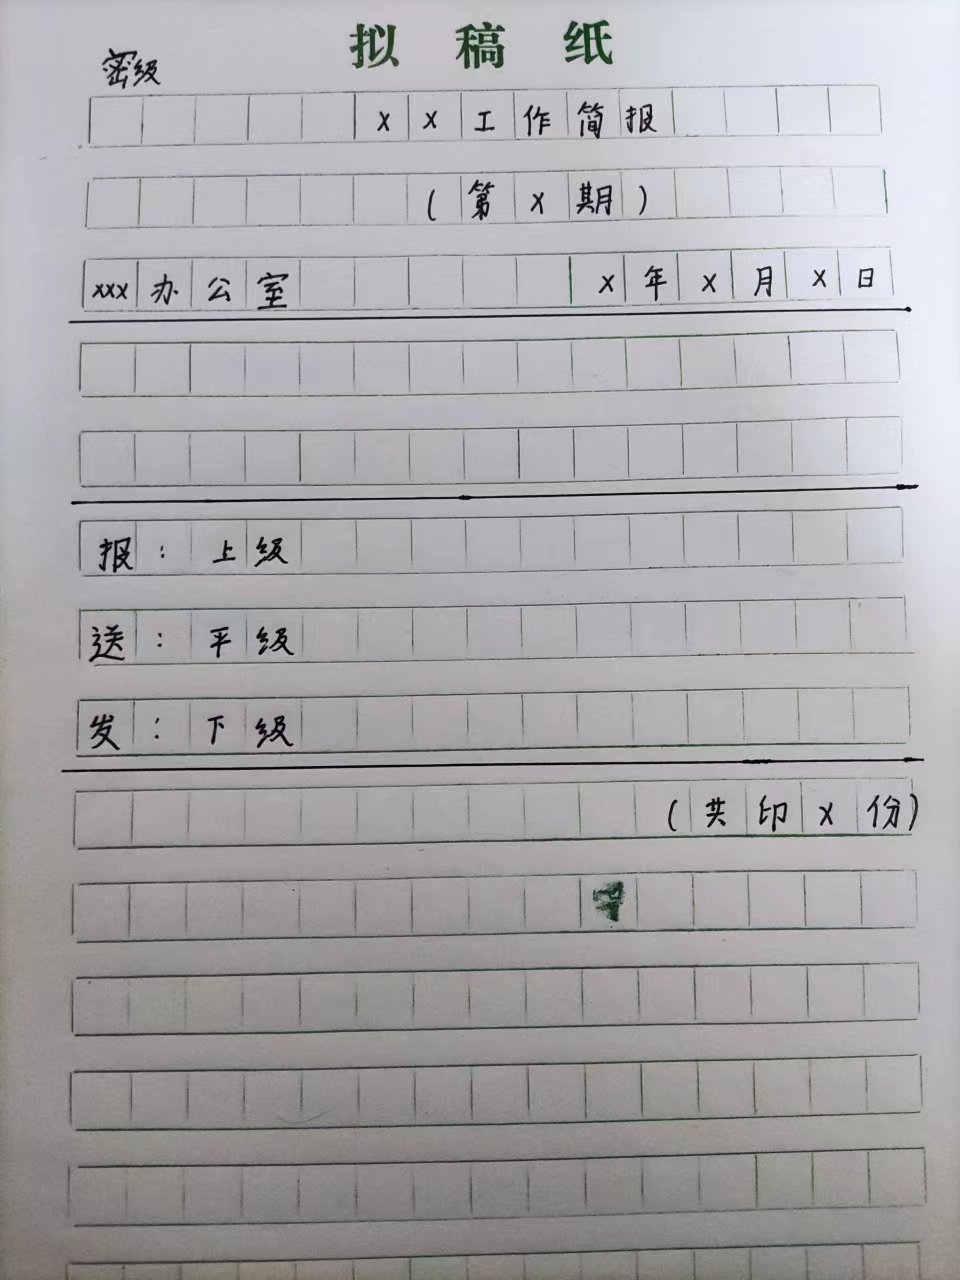 拟稿纸
密级
xx工作简报
(第x期)
xxx办公室 x年x月x日
报：上级
送：平级
发：下级
(共印x份)